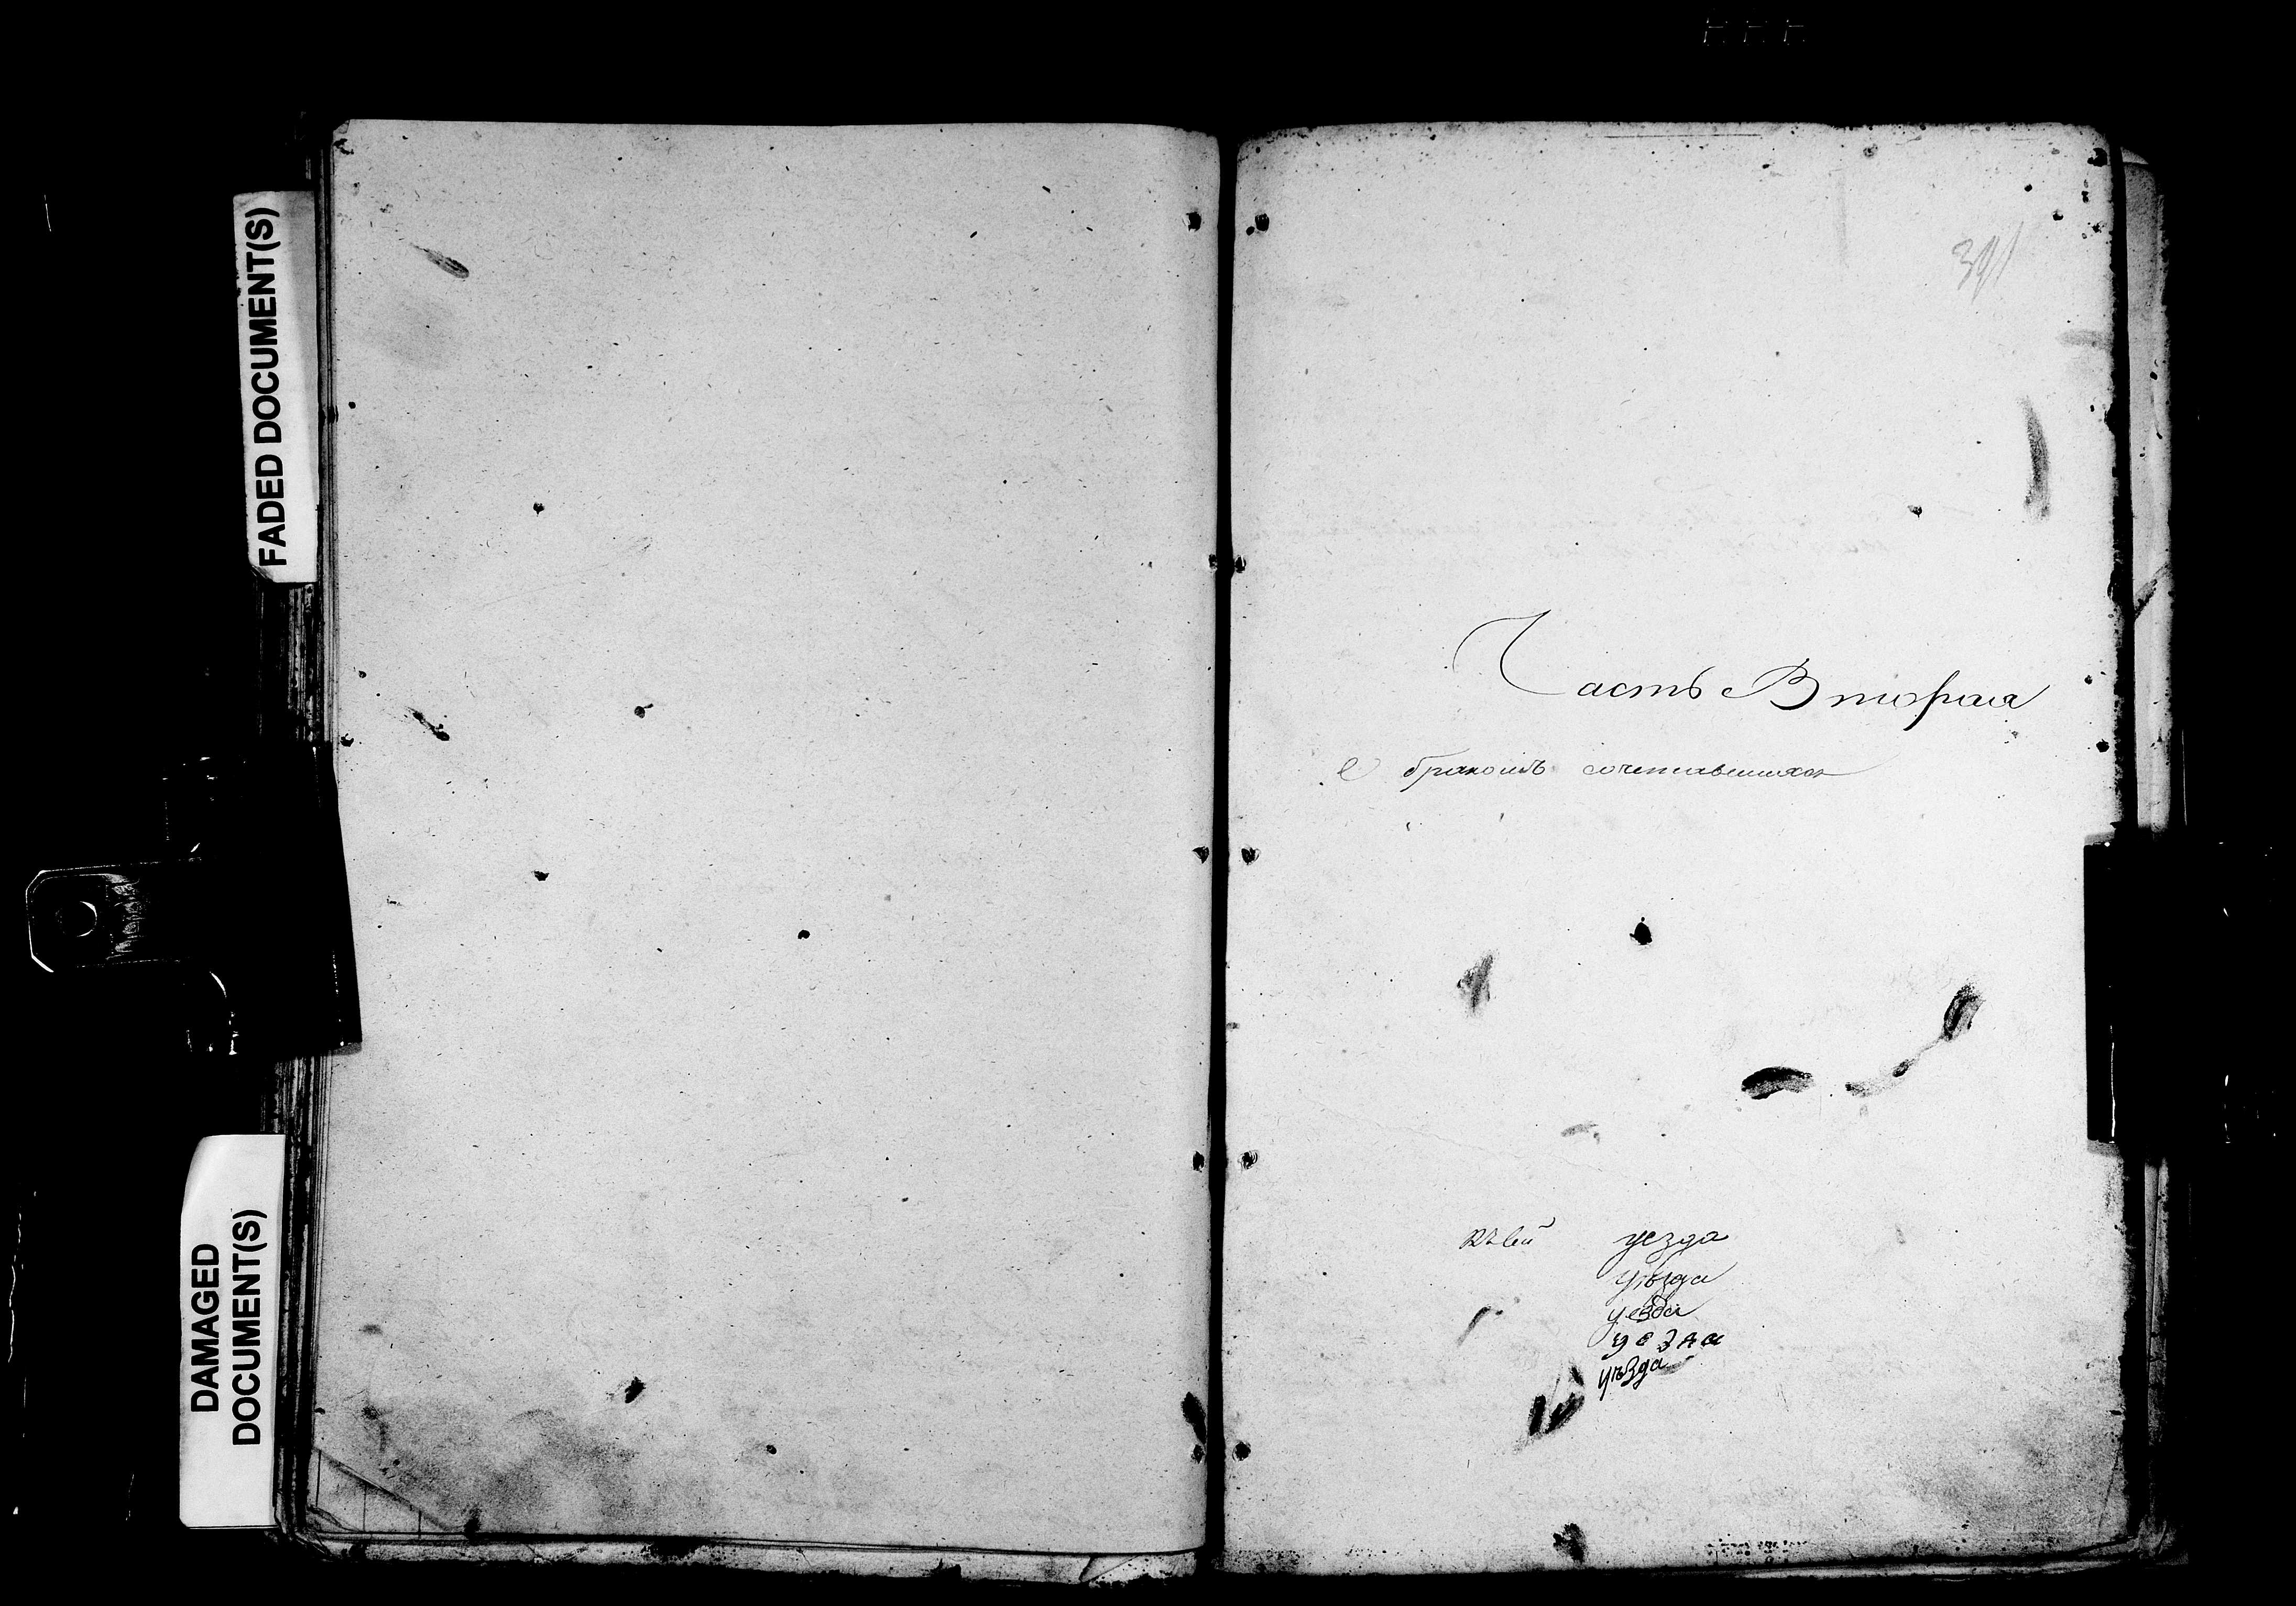 FADED DOCUMENT(S)
DAMAGED
DOCUMENT(S)
391
Часть Вторая
О бракомъ сочетавшихся
уезда
уѣзда
уезда
уезда
уѣзда